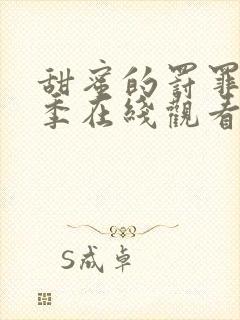 甜蜜的罚罪
季在綫觀看
S成卓